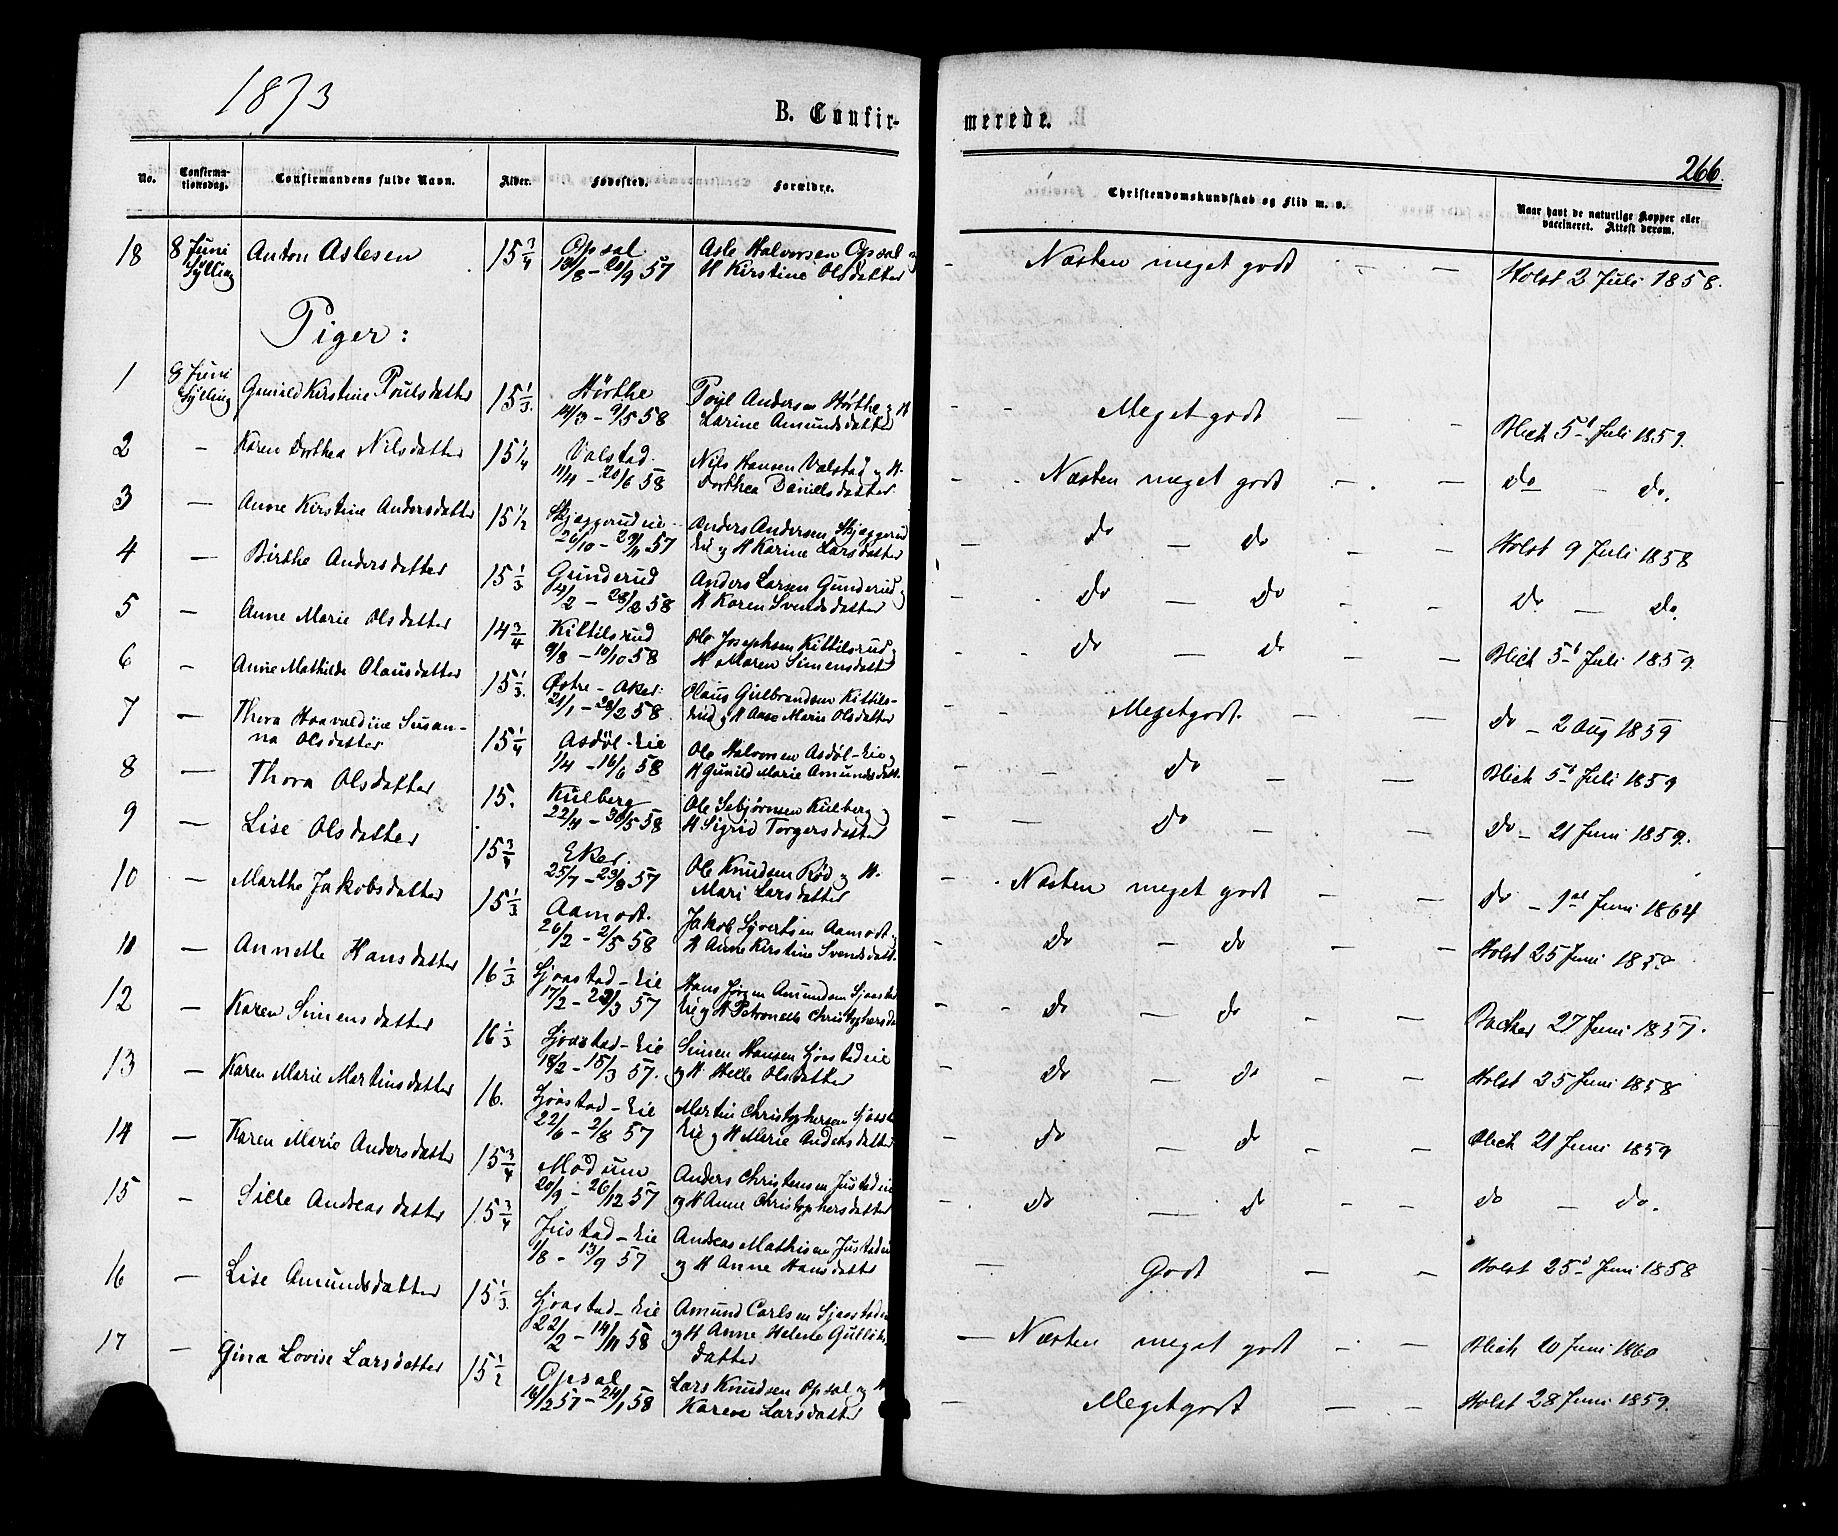 1873
B. Confirmerede.
266.
No.
Confirmationsdag.
Confirmandens fulde Navn.
Alder.
Fødested.
Forældre.
Christendomskundskab og Flid m. v.
Naar havt de naturlige Kopper eller vaccineret. Attest derom.
18 8 Juni Sylling Anton Aslesen 15 3/4 Opsal 18/8 - 20/9 57 Asle Halvorsen Opsal og H Kirstine Olsdatter - Næsten meget godt - - Holst 2 Juli 1858.
Piger:
1 8 Juni Sylling Gunild Kirstine Poulsdatter 15 1/3. Hørthe 14/3 - 9/5 58 Poul Andersen Hørthe og H Larine Amundsdatter - - Meget godt - - Blich 5t Juli 1859.
2 - Karen Dorthea Nilsdatter 15 1/4 Valstad 11/4 - 20/6 58 Nils Hansen Valstad og H. Dorthea Danielsdatter - - Næsten meget godt - - - do - do.
3 - Anne Kirstine Andersdatter 15 1/2 Skjæggerudeie 26/10 - 29/11 57 Anders Andersen Skjæggerud Eie og H Karine Larsdatter - do - do - - Holst 9 Juli 1858
4 - Birthe Andersdatter 15 1/3 Gunderud 4/2 - 28/2 58 Anders Larsen Gunderud og H Karen Svendsdatter - - do - do - - do - do.
5 - Anne Marie Olsdatter 14 3/4 Kittilsrud 9/8 - 10/10 58 Ole Josephsen Kittilsrud og H Maren Simensdatter - - do - do - - Blich 5t Juli 1859.
6 - Anne Mathilde Olausdatter 15 1/3. Østre-Aker. 21/1 - 28/2 58. Olaus Gulbrandsen Kittilsrud og H Anne Marie Olsdatter - - Meget godt. - - do - 2 Aug 1859
7 - Thora Haavaldine Susanna Olsdatter 15 1/4 Asdøl-Eie 1/4 - 16/6 58 Ole Halvorsen Asdøl-Eie og H Gunild Marie Amundsdatt. - - do - - Blich 5t Juli 1859
8 - Thora Olsdatter 15. Kulberg 22/4 - 30/5 58 Ole Sebjørnsen Kulberg og H Sigrid Torgersdatter - - do - - do - 21 Juni 1859.
9 - Lise Olsdatter 15 3/4 Eker. 25/7 - 23/8 57 Ole Knudsen Rød og H. Mari Larsdatter - - Næsten meget godt - - do - 1st Juni 1864
10 - Marthe Jakobsdatter 15 1/3 Aamodt. 26/2 - 2/5 58 Jakob Syvertsen Aamodt og H Anne Kirstine Svendsdatt. - do - do - - Holst 25 Juni 1858
11 - Annette Hansdatter 16 1/3 Sjaastad-Eie 17/2 - 22/3 57 Hans Jørgen Amundsen Sjaastad Eie og H Petronelle Christophersda - - do - do - - Backer 27 Juni 1857.
12 - Karen Simensdatter 16 1/3 Sjaastad-Eie 18/2 - 15/3 57. Simen Hansen Sjaastadeie og H Helle Olsdatter - do - do - - Holst 25 Juni 1858
13 - Karen Marie Martinsdatter 16. Sjaastad-Eie 22/6 - 2/8 57 Martin Christophersen Sjaast Eie og H Marie Andersdatter - do - do - - Blich 21 Juni 1859
14 - Karen Marie Andersdatter 15 3/4 Modum 20/9 - 26/12 57 Anders Christensen Justadeie og H Anne Christophersdatter - do - do - - do - do.
15 - Sille Andreasdatter 15 3/4 Justad-Eie 1/8 - 13/9 57 Andreas Mathisen Justadei og H Anne Hansdatter - Godt - - Holst 25d Juni 1858
16 - Lise Amundsdatter 15 1/3. Sjaastad-Eie 22/2 - 14/11 58 Amund Carlsen Sjaastadei og H Anne Helene Gulliksdatter - Næsten meget godt - - Blich 10 Juni 1860
17 - Gina Lovise Larsdatter 15 1/2 Opsal 16/12 57 - 24/1 58 Lars Knudsen Opsal og H Karen Larsdatter Meget godt - - Holst 28 Juni 1859.